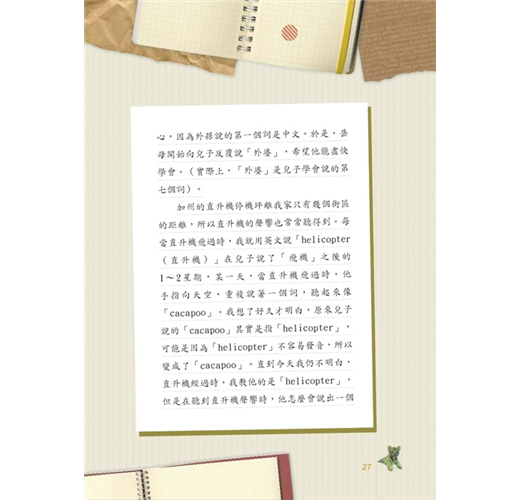 心，因為外孫說的第一個詞是中文。於是，岳
母開始向兒子反覆說「外婆」，希望他能盡快
學會。（實際上，「外婆」是兒子學會說的第
七個詞）。
加州的直升機停機坪離我家只有幾個街區
的距離，所以直升機的聲響也常常聽得到。每
當直升機飛過時，我就用英文說「helicopter
（直升機）」在兒子說了「飛機」之後的
1～2星期，某一天，當直升機飛過時，他
手指向天空，重複說著一個詞，聽起來像
「cacapoo」。我想了好久才明白，原來兒子
說的「cacapoo」其實是指「helicopter」，
可能是因為「helicopter」不容易發音，所以
變成了「cacapoo」。直到今天我仍不明白，
直升機經過時，我教他的是「helicopter」，
但是在聽到直升機聲響時，他怎麼會說出一個
27